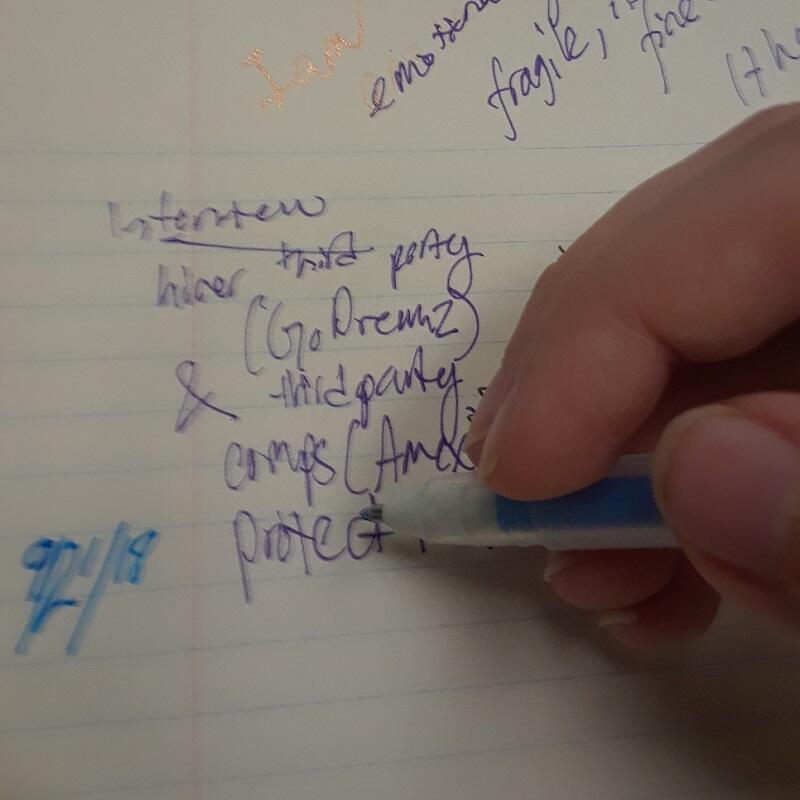 Ian
emotional
fragile,
Interview
hires third party
(GoDreamz)
& third party
comps (Amex
protect
9/21/18